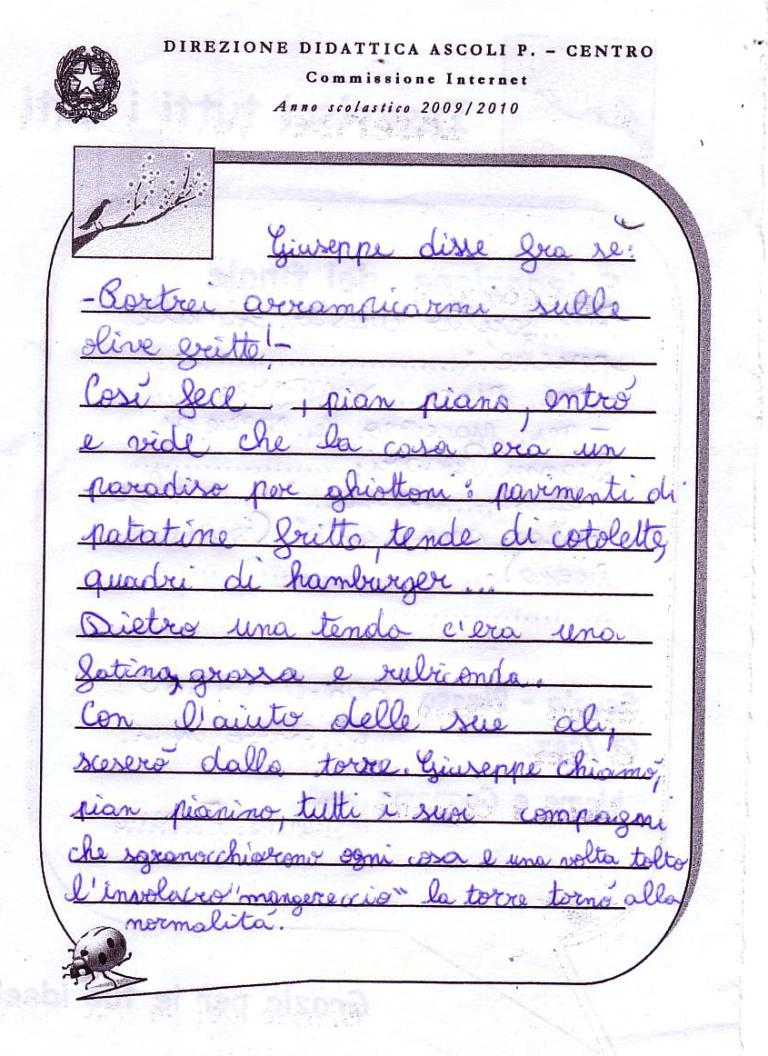 DIREZIONE DIDATTICA ASCOLI P. – CENTRO
Commissione Internet
Anno scolastico 2009/2010
Giuseppe disse fra sè:
-Portrei arrampicarmi sulle
olive fritte!-
Così fece , pian piano, entrò
e vide che la casa era un
paradiso per ghiottoni: pavimenti di
patatine fritte, tende di cotolette,
quadri di hamburger...
Dietro una tenda c'era una
fatina, grossa e rubiconda.
Con l'aiuto delle sue ali,
scesero dalla torre. Giuseppe chiamò,
pian pianino, tutti i suoi compagni
che sgranocchiarono ogni cosa e una volta tolto
l'involucro "mangereccio" la torre tornò alla
normalità.